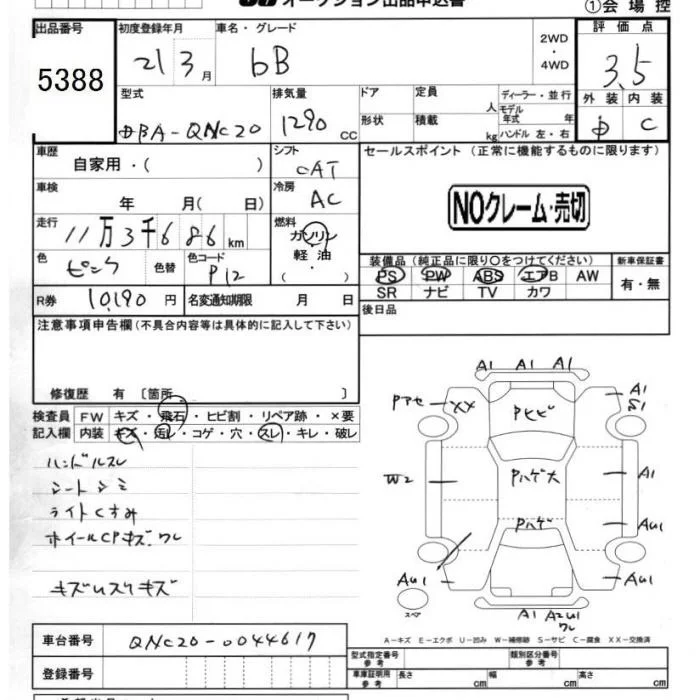 オークション出品申込書
①会場控
出品番号 5388
初度登録年月 21 3月
車名・グレード bB
2WD・4WD
評価点 3.5
外装 内装 C
型式 DBA-QNC20
排気量 1290 CC
ドア 形状
定員 人
積載 kg
ディーラー・並行
モデル年式 年
ハンドル 左・右
車歴 自家用・( )
シフト CAT
セールスポイント (正常に機能するものに限ります)
NOクレーム・売切
車検 年 月( 日)
冷房 AC
走行 11万3千686km
燃料 ガソリン・軽油・( )
色 ピンク 色替
色コード P12
装備品 (純正品に限り○をつけてください)
PS PW ABS エアB AW
SR ナビ TV カワ
新車保証書 有・無
R券 10,190円
名変通知期限 月 日
後日品
注意事項申告欄(不具合内容等は具体的に記入して下さい)
修復歴 有 〔箇所 〕
検査員記入欄
FW キズ・飛石・ヒビ割・リペア跡・×要
内装 キズ・汚レ・コゲ・穴・スレ・キレ・破レ
ハンドルスレ
シートシミ
ライトくすみ
ホイールCPキズ.ワレ
A1 A1 A1
Pアセ XX
Pヒビ
A1
S1
W2
Pハゲ大
A1
Pハゲ
AU1
AU1
AU1
スペア
A1 A2U1
ワレ
A-キズ E-エクボ U-凹み W-補修跡 S-サビ C-腐食 XX-交換済
車台番号 QNC20-0044617
登録番号
型式指定番号 参考
類別区分番号 参考
車庫証明用 参考 長さ cm 幅 cm 高さ cm